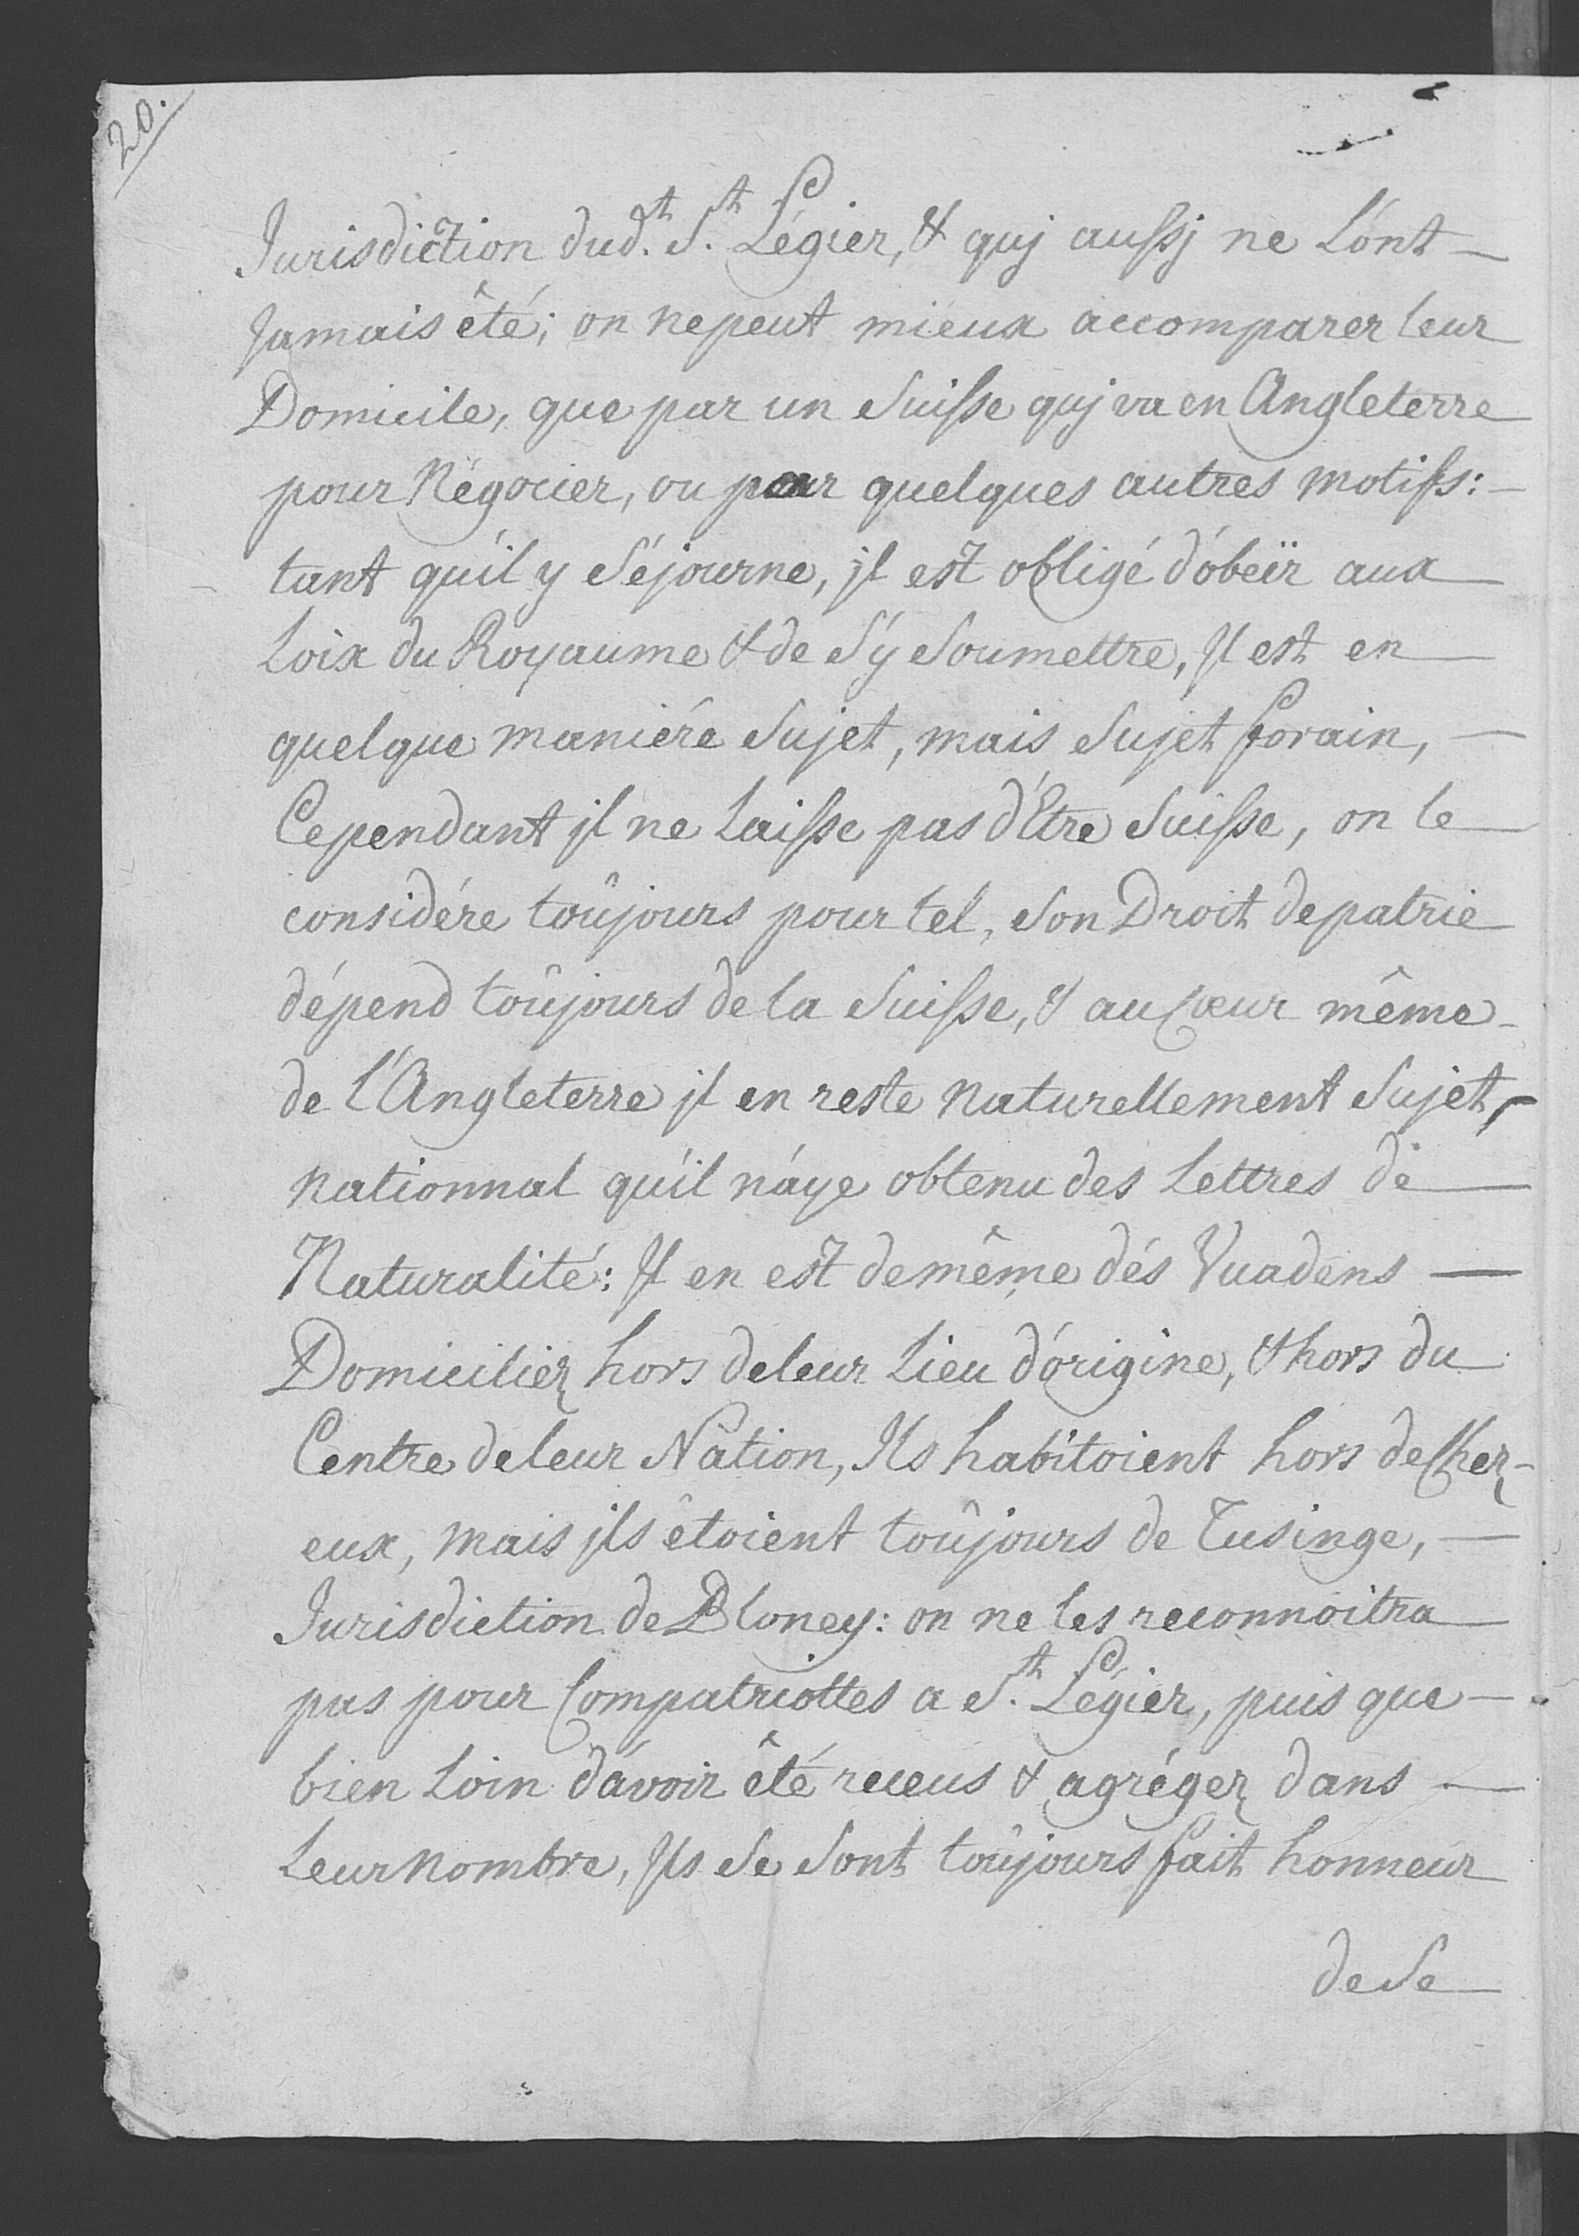 20.
Jurisdiction dud.t S.t Légier, & quj aussj ne L'ónt
Jamais êté; on ne peut mieux accomparer leur
Domicile, que par un Suisse quj va en Angleterre
pour Négocier, ou pour quelques autres motifs:
tant qu'il y Séjourne, jl est obligé d'óbeïr aux
Loix du Royaume & de S'y Soumettre, Jl est en
quelque maniére Sujet, mais Sujet forain,
Cependant jl ne Laisse pas d'Etre Suisse, on le
considére toûjours pour tel, Son Droit de patrie
dépend toûjours de la Suisse, & au Cœur même
de l'Angleterre jl en reste Naturellement Sujet,
Nationnal qu'il n'áye obtenu des Lettres de
Naturalité: Jl en est de même dés Vuadens
Domiciliez hors de leur Lieu d'órigine, & hors du
Centre de leur Nation, Jls habitoient hors de Cher-
eux, mais jls êtoient toûjours de Tusinge,
Jurisdiction de Bloney: on ne les reconnoitra
pas pour Compatriottes a S.t Légier, puis que
bien Loin d'ávoir êté receus & agrégez dans
Leur Nombre, Jls Se Sont toûjours fait honneur
de Se